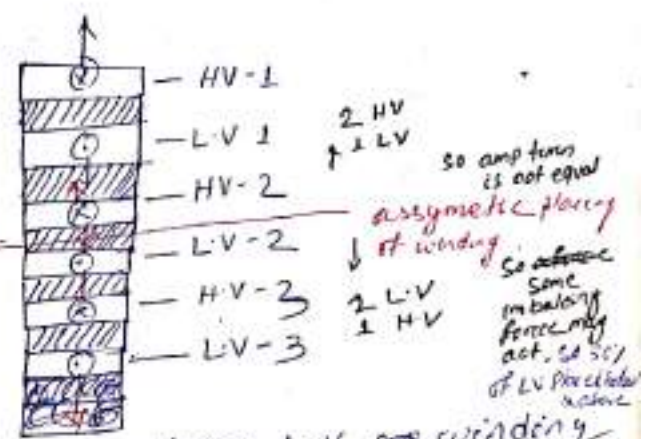 HV-1
L.V 1
HV-2
L.V-2
H.V-3
L.V-3
2 HV
1 LV
so amp turns
is not equal
assymetic placing
of winding
2 L.V
1 HV
So
some
imbalang
force may
act. so 50%
of LV
winding